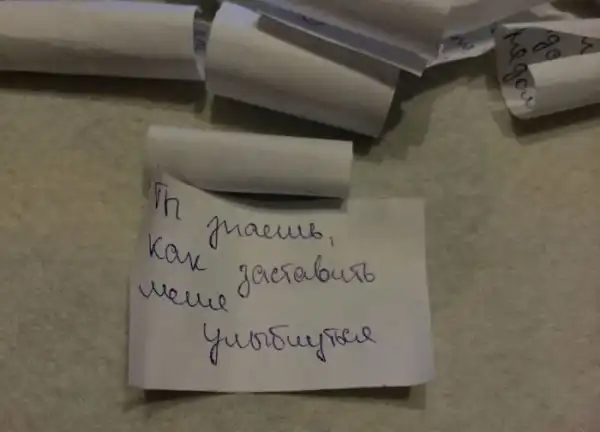 Ты знаешь,
как заставить
меня
улыбнуться